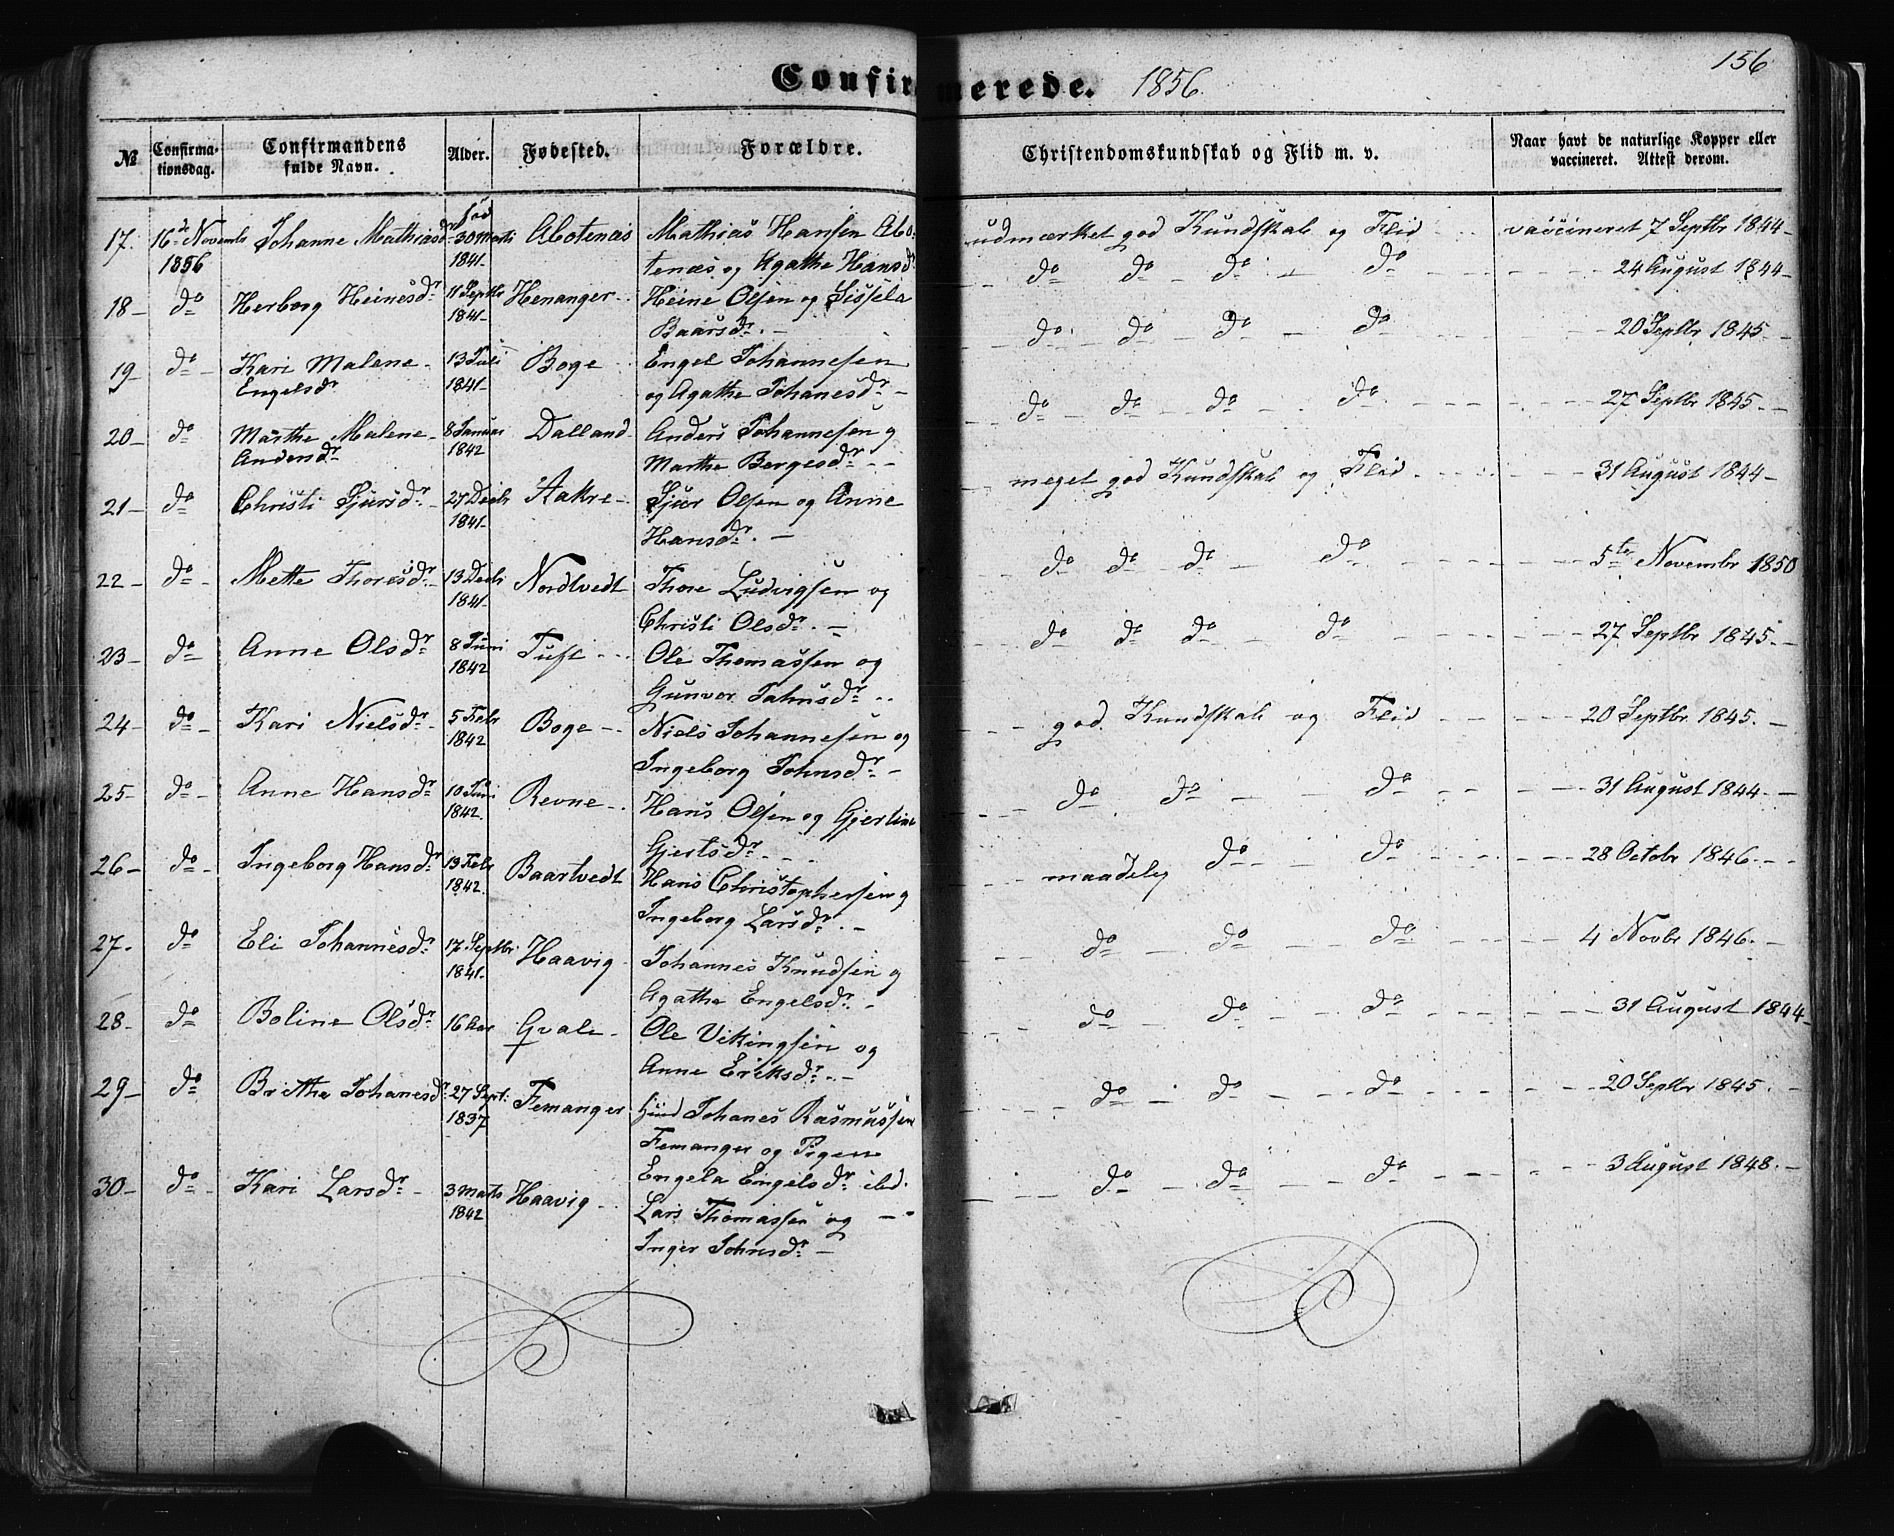 Confirmerede. 1856.
156
№ Confirmationsdag. Confirmandens fulde Navn. Alder. Fødested. Forældre. Christendomskundskab og Flid m. v. Naar havt de naturlige Kopper eller vaccineret. Attest derom.
17. 16de Novembr Johanne Mathiasdr fød 30 Marts Abotenæs Mathias Hansen Abo- udmærket god Kundskab og Flid vaccineret 7 Septbr 1844
1856 1841 tenæs og Agathe Hansdr
18 do Herborg Heinesdr 11 Septbr Henanger Heine Olsen og Sissela do do do do 24 August 1844
1841 Baarsdr.
19 do Kari Malene 13 Juli Boge Engel Johannesen do do do do 20 Septbr 1845
Engelsdr 1841 og Agathe Johanesdr
20 do Marthe Malene 8 Januar Dalland Anders Johannesen og do do do do 27 Septbr 1845
Andersdr 1842 Marthe Bergesdr
21 do Christi Sjursdr 27 Decbr Aakre Sjur Olsen og Anne meget god Kundskab og Flid 31 August 1844
1841 Hansdr.
22 do Mette Thoresdr 13 Decbr Nordtvedt Thore Ludvigsen og do do do do 5te Novembr 1850
1841 Christi Olsdr.
23 do Anne Olsdr 8 Juni Tuft Ole Thomassen og do do do do 27 Septbr 1845
1842 Gunvor Johnsdr
24 do Kari Nielsdr 5 Febr Boge Niels Johannesen og god Kundskab og Flid 20 Septbr 1845
1842 Ingeborg Johnsdr
25 do Anne Hansdr 10 Juni Revne Hans Olsen og Gjertine do do do 31 August 1844
1842. Gjertsdr
26 do Ingeborg Hansdr 13 Febr Baartvedt Hans Christophersen og maadelig do do 28 Octobr 1846
1842 Ingeborg Larsdr.
27. do Eli Johannesdr 17 Septbr Haavig Johannes Knudsen og do do do 4 Novbr 1846
1841. Agathe Engelsdr.
28 do Boline Olsdr 16 Aar Gvale Ole Vikingsen og do do do 31 August 1844
Anne Eriksdr.
29 do Brithe Johanesdr 27 Sept: Femanger Johanes Rasmussen do do do 20 Septbr 1845
1837 Femanger og Pigen
Engela Engelsdr ibd.
30 do Kari Larsdr 3 Marts Haavig Lars Thomassen og do do do 3 August 1848
1842 Inger Johnsdr